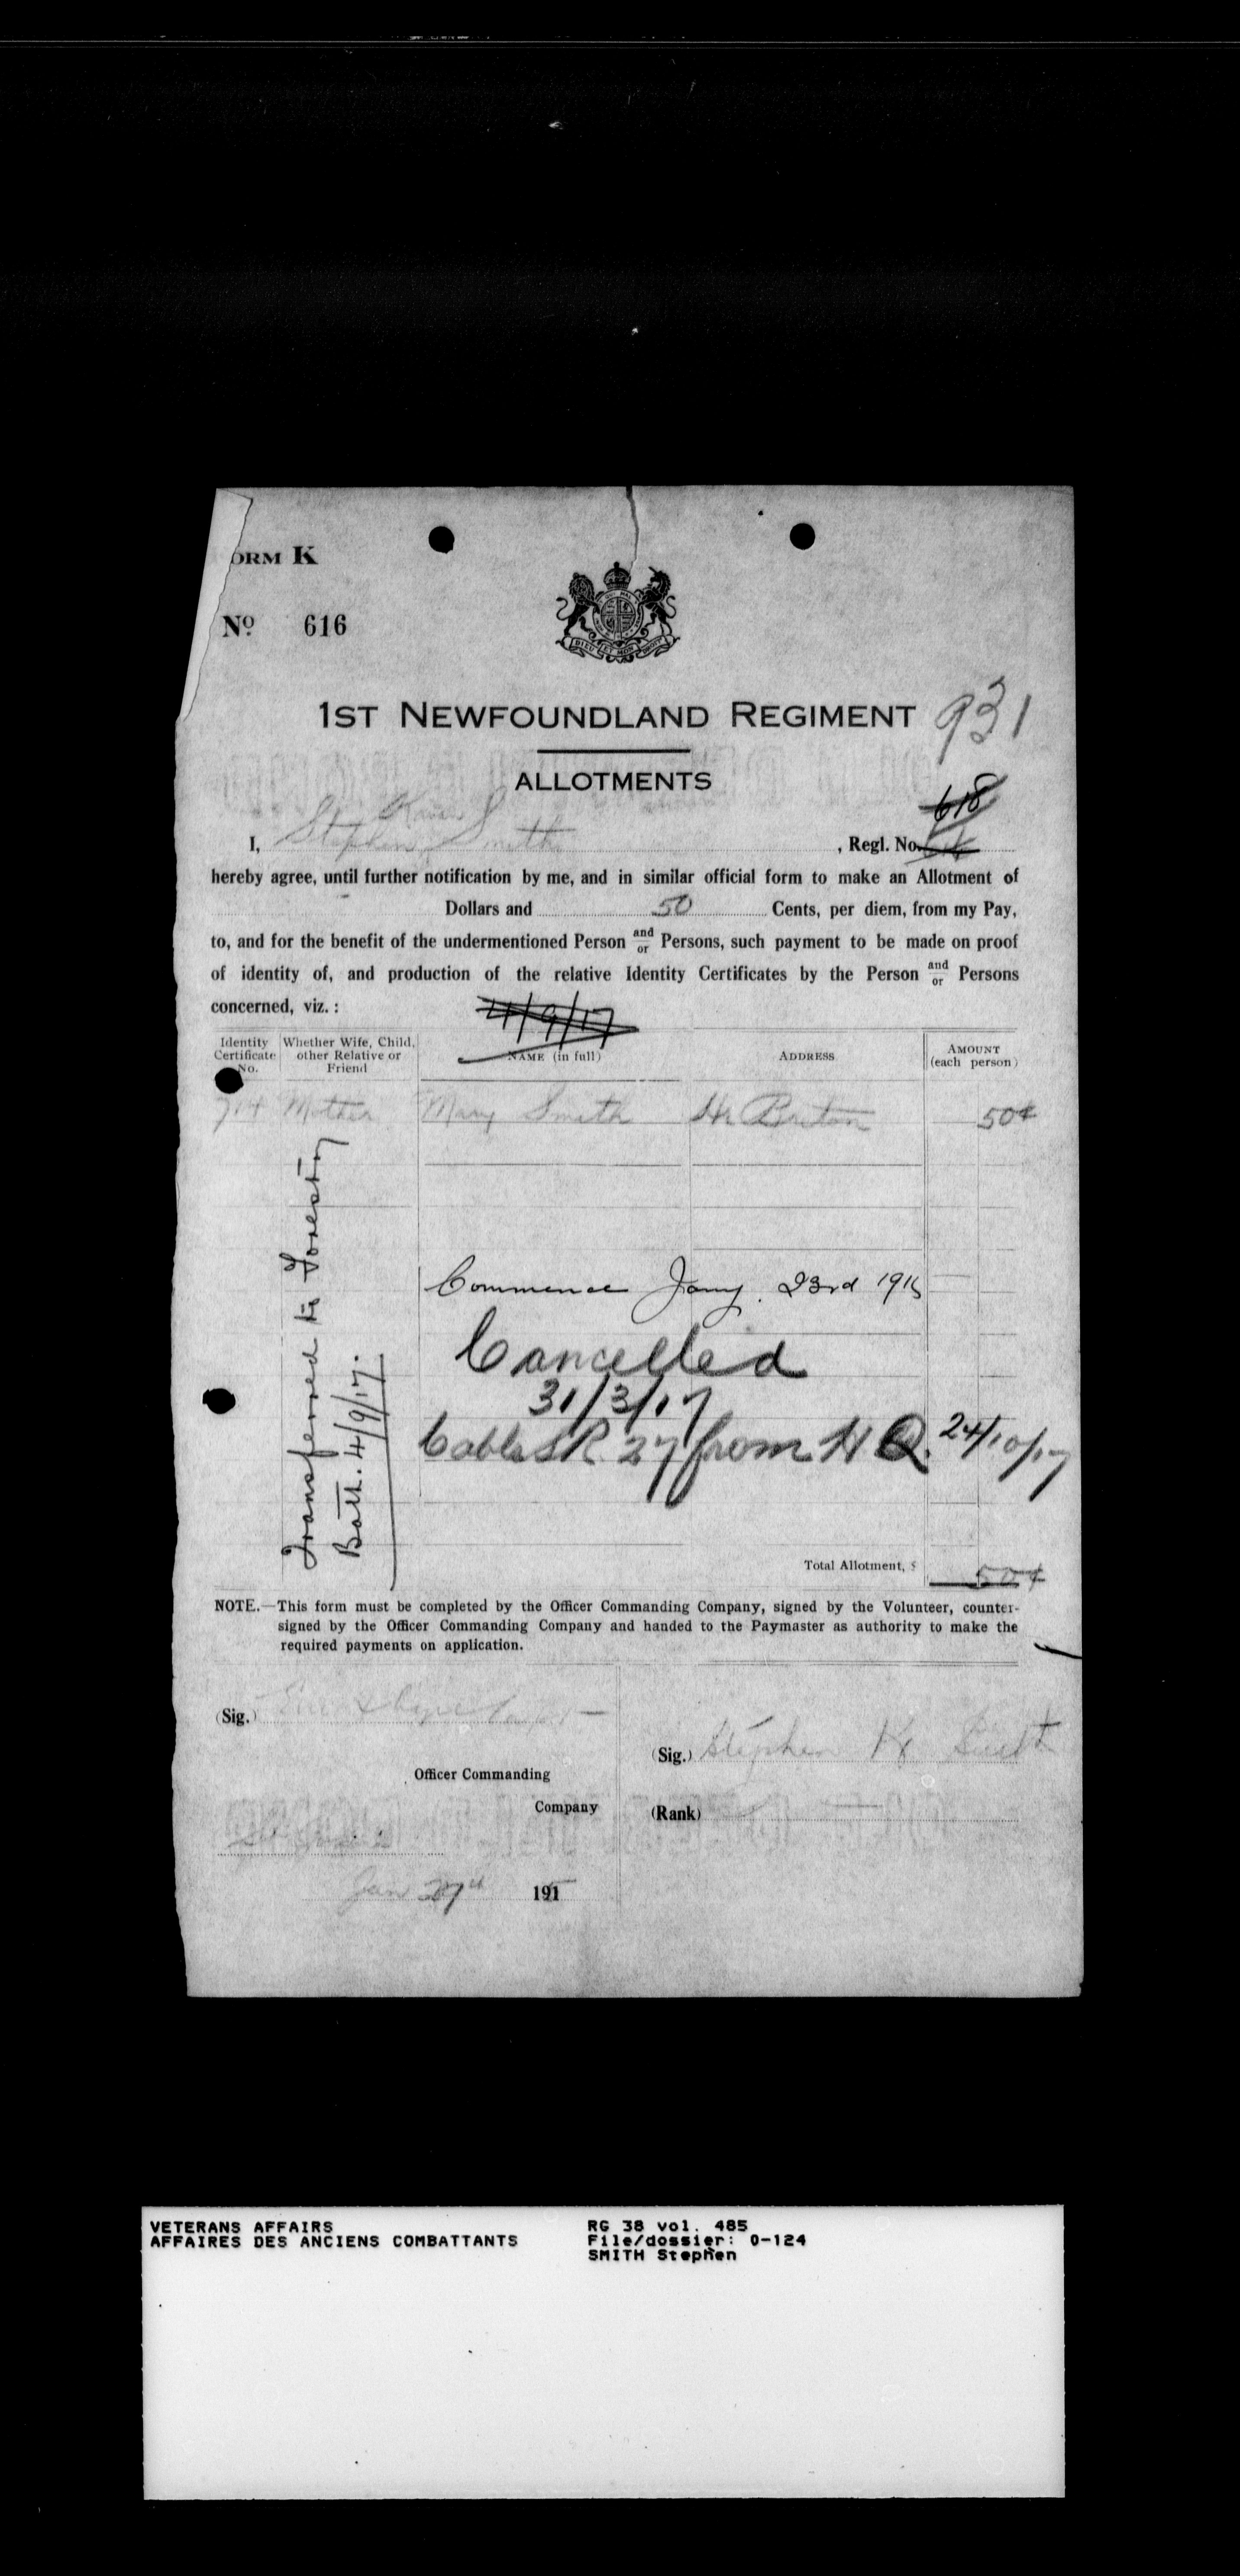 ORM K
Nº 616
DIEU ET MON DROIT
1ST NEWFOUNDLAND REGIMENT
931
ALLOTMENTS
618
I, Stephen Smith , Regl. No.
hereby agree, until further notification by me, and in similar official form to make an Allotment of
Dollars and 50 Cents, per diem, from my Pay,
to, and for the benefit of the undermentioned Person and/or Persons, such payment to be made on proof
of identity of, and production of the relative Identity Certificates by the Person and/or Persons
concerned, viz. :
4/9/17
Identity Certificate No. Whether Wife, Child, other Relative or Friend NAME (in full) ADDRESS AMOUNT (each person)
714 Mother Mary Smith Hr Briton 50¢
Transferred to Forestry
Batt. 4/9/17.
Commence Jany. 23rd 1915
Cancelled
31/3/17
Cable SR 27 from H Q. 24/10/17
Total Allotment, $ 50¢
NOTE.—This form must be completed by the Officer Commanding Company, signed by the Volunteer, counter-
signed by the Officer Commanding Company and handed to the Paymaster as authority to make the
required payments on application.
(Sig.)
(Sig.) Stephen K Smith
Officer Commanding
Company
(Rank)
Jan 27th 1915
VETERANS AFFAIRS
AFFAIRES DES ANCIENS COMBATTANTS
RG 38 vol. 485
File/dossier: 0-124
SMITH Stephen